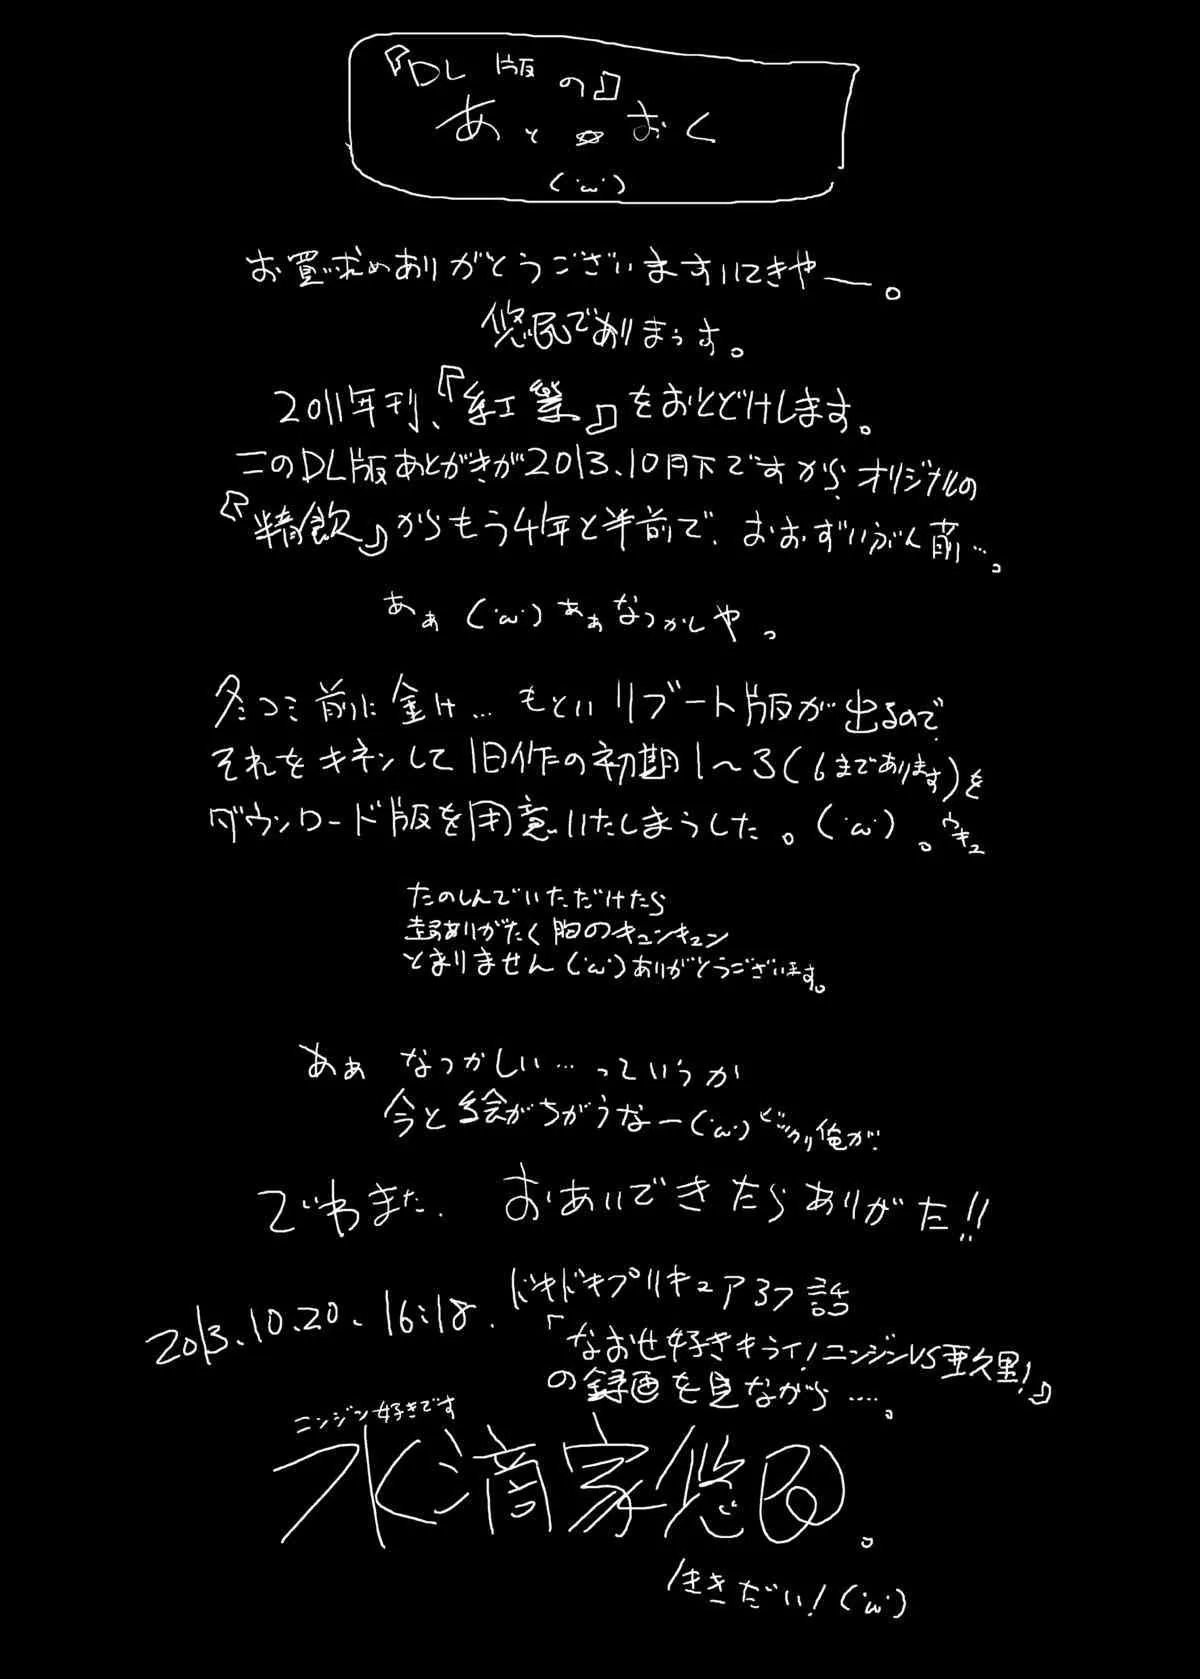 『DL版の』
あとおく
(・ω・)
お買い求めありがとうございますいてきやー。
悠民でありまうす。
2011年刊、『紅業』をおとどけします。
このDL版あとがきが2013.10月下ですから、オリジナルの
『精飲』からもう4年と半前で、おおずいぶん前…。
あぁ(・ω・)ああなつかしや。
冬コミ前に金け…もといリブート版が出るので、
それをキネンして旧作の初期1〜3(6まであります)を
ダウンロード版を用意いたしまうした。(・ω・)。ウキュ
たのしんでいただけたら
ありがたく胸のキュンキュン
とまりません(・ω・)ありがとうございます。
あぁ なつかしい…っていうか
今と絵がちがうなー(・ω・)ビックリ俺が。
でわまた. おあいできたらありがた!!
2013.10.20. 16:18. ドキドキプリキュア37話
「なおせ好きキライ!ニンジンVS亜久里!』
の録画を見ながら……。
ニンジン好きです
水滴家悠
生きだい!(・ω・)